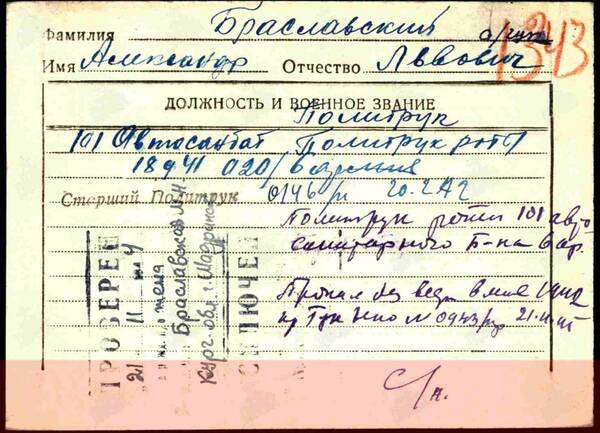 Фамилия Браславский
1343
Имя Александр Отчество Львович
ДОЛЖНОСТЬ И ВОЕННОЕ ЗВАНИЕ
Политрук
101 Автосанбат Политрук роты
18 VII 41 020/6 армия
Старший Политрук 0146/п 20.2.42
Политрук роты 101 авто
санитарного б-на 6 ар.
Пропал без вести в мае 1942
пр ГУК НКО № 0943/пр 21.11.
ПРОВЕРЕН
21 11
жена
Браславская М.Н
Кург. обл. г. Шадринск
ИСКЛЮЧЕН